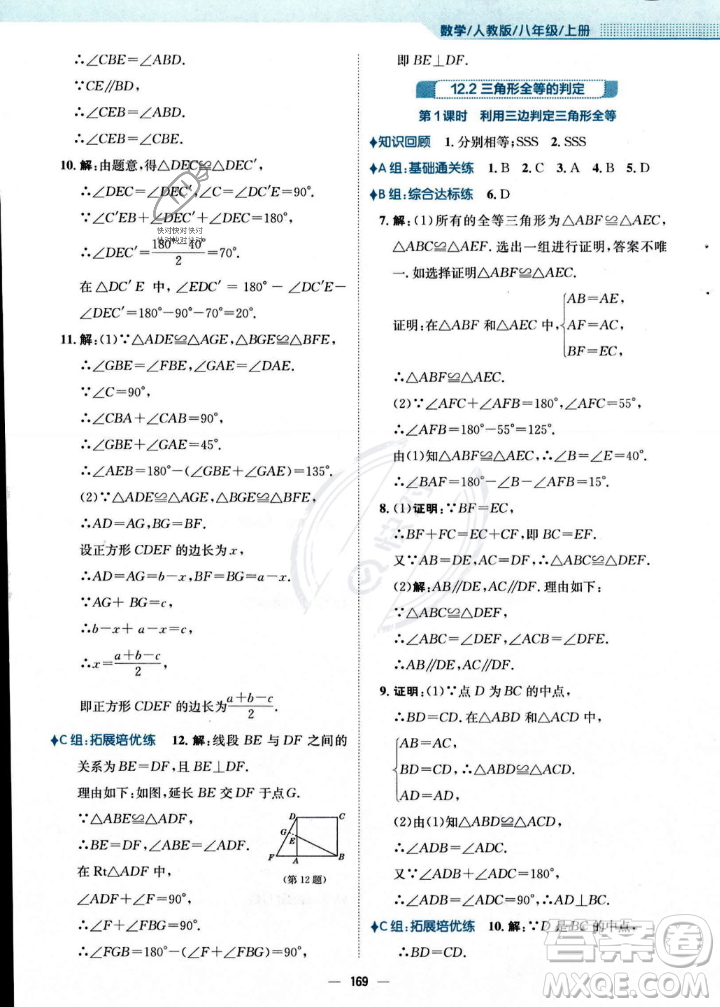 数学/人教版/八年级/上册
∴∠CBE=∠ABD.
∵CE∥BD,
∴∠CEB=∠ABD.
∴∠CEB=∠CBE.
10. 解:由题意,得△DEC≌△DEC′,
∴∠DEC=∠DEC′,
∵∠C′EB+∠DEC′+∠DEC=180°,
∴∠DEC′=\frac{180°-40°}{2}=70°.
在△DC′E 中,∠EDC′=180°-∠DC′E-
∠DEC′=180°-90°-70°=20°.
11. 解:(1)∵△ADE≌△AGE,△BGE≌△BFE,
∴∠GBE=∠FBE,∠GAE=∠DAE.
∵∠C=90°,
∴∠CBA+∠CAB=90°,
∴∠GBE+∠GAE=45°.
∴∠AEB=180°-(∠GBE+∠GAE)=135°.
(2)∵△ADE≌△AGE,△BGE≌△BFE,
∴AD=AG,BG=BF.
设正方形 CDEF 的边长为x,
∴AD=AG=b-x,BF=BG=a-x,
∵AG+BG=c,
∴b-x+a-x=c,
∴x=\frac{a+b-c}{2},
即正方形 CDEF 的边长为\frac{a+b-c}{2}.
C组:拓展培优练 12. 解:线段 BE 与 DF 之间的
关系为 BE=DF,且 BE⊥DF.
理由如下:如图,延长 BE 交 DF 于点G.
∵△ABE≌△ADF,
∴BE=DF,∠ABE=∠ADF,
在 Rt△ADF 中,
∠ADF+∠F=90°,
∴∠ABE+∠F=90°,
∴∠FGB=180°-(∠ABE+∠F)=90°,
D C
G
E
F A B
(第12题)
即 BE⊥DF.
12.2 三角形全等的判定
第1课时 利用三边判定三角形全等
知识回顾 1. 分别相等;SSS 2. SSS
A组:基础通关练 1. B 2. C 3. D 4. B 5. D
B组:综合达标练 6. D
7. 解:(1)所有的全等三角形为△ABF≌△AEC,
△ABC≌△AEF. 选出一组进行证明,答案不唯
一. 如选择证明△ABF≌△AEC.
证明:在△ABF 和△AEC 中,{AB=AE,
AF=AC,
BF=EC,
∴△ABF≌△AEC.
(2)∵∠AFC+∠AFB=180°,∠AFC=55°,
∴∠AFB=180°-55°=125°.
由(1)知△ABF≌△AEC,
∴∠BAF=∠EAC=30°,
8. (1)证明:∵BF=EC,
∴BF+FC=EC+CF,即 BC=EF.
又∵AB=DE,AC=DF,∴△ABC≌△DEF.
(2)解:AB∥DE,AC∥DF. 理由如下:
∵△ABC≌△DEF,
∴∠ABC=∠DEF,∠ACB=∠DFE,
∴AB∥DE,AC∥DF.
9. 证明:(1)∵点 D 为 BC 的中点,
∴BD=CD. 在△ABD 和△ACD 中,
{AB=AC,
BD=CD,
AD=AD,
∴△ABD≌△ACD.
(2)由(1)知△ABD≌△ACD,
∴∠ADB=∠ADC.
又∵∠ADB+∠ADC=180°,
∴∠ADB=∠ADC=90°,∴AD⊥BC.
C组:拓展培优练 10. 解:∵D 是 BC 的中点,
∴BD=CD.
169